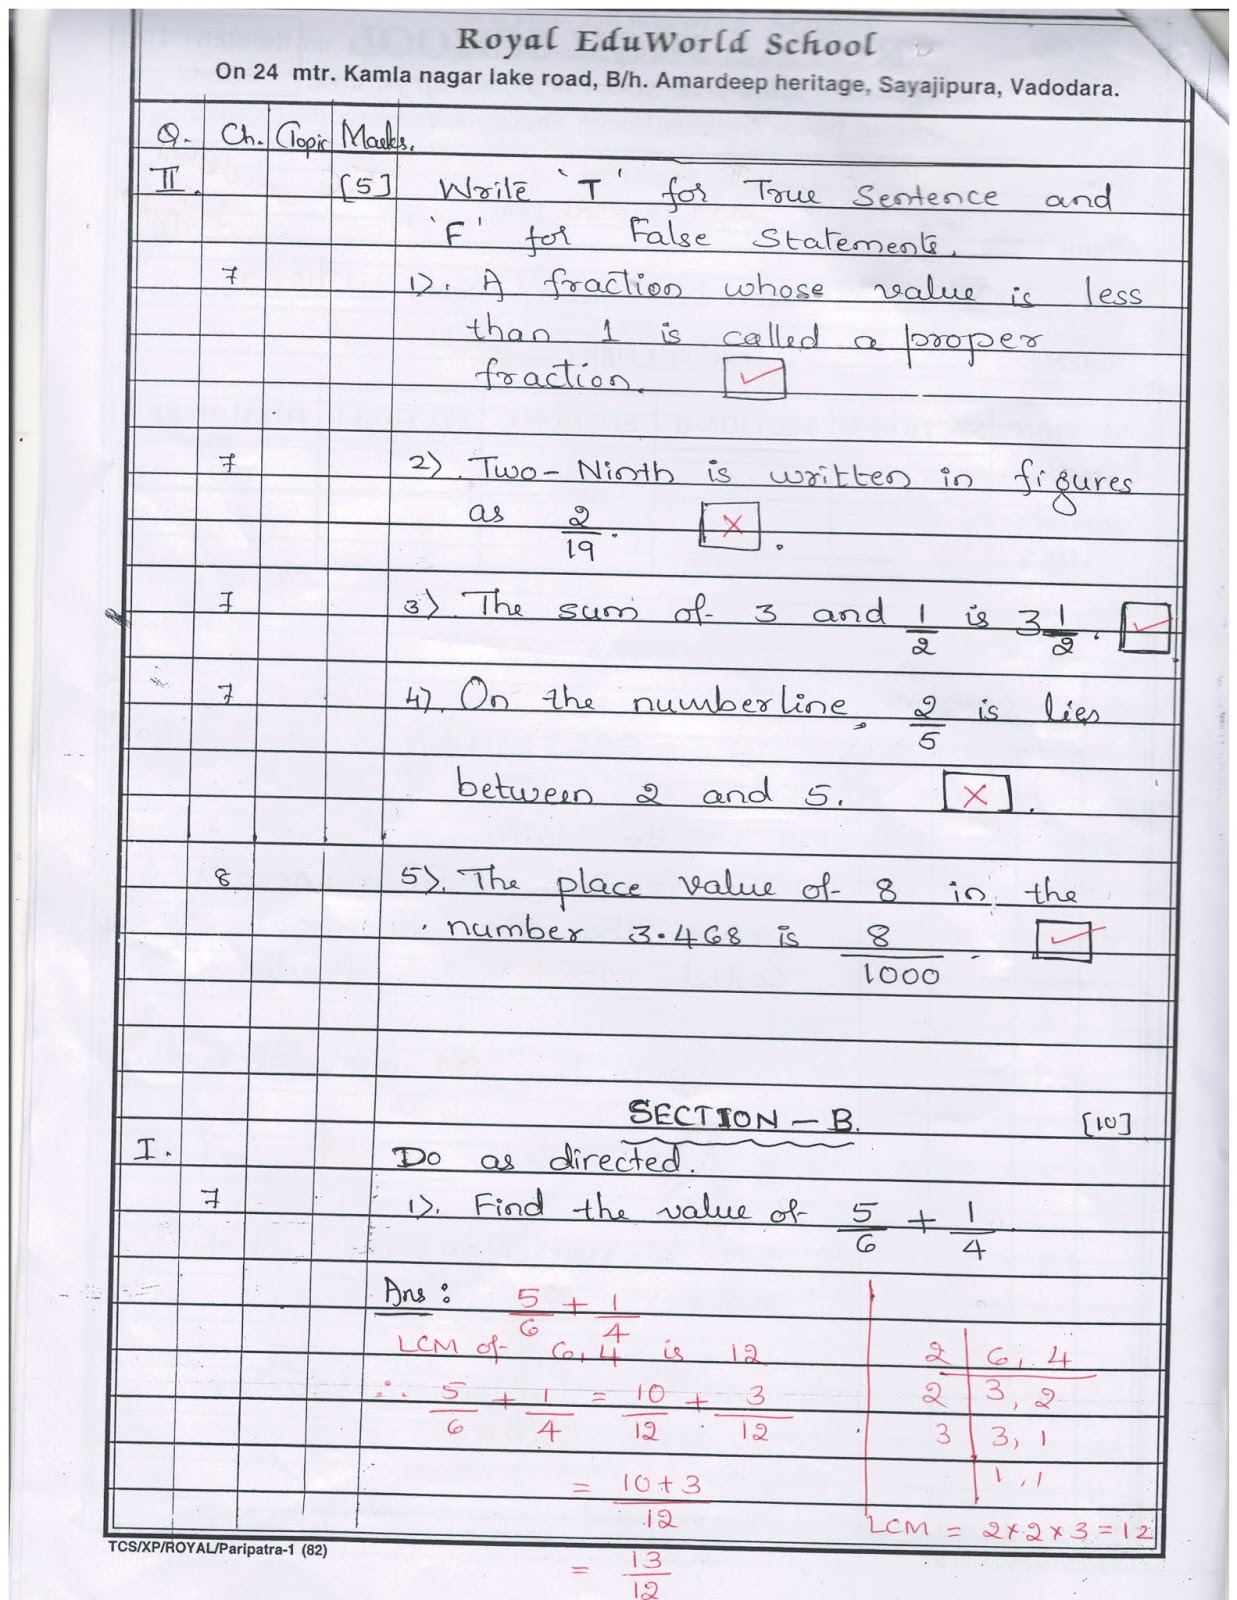 Royal EduWorld School
On 24 mtr. Kamla nagar lake road, B/h. Amardeep heritage, Sayajipura, Vadodara.
Q. Ch. Topic Marks.
II. [5] Write 'T' for True Sentence and
'F' for False Statements.
7 1). A fraction whose value is less
than 1 is called a proper
fraction. ✓
7 2). Two-Ninth is written in figures
as 2/19. ×
7 3). The sum of 3 and 1/2 is 3 1/2. ✓
7 4). On the numberline, 2/5 is lies
between 2 and 5. ×
8 5). The place value of 8 in the
number 3.468 is 8/1000. ✓
SECTION - B. [10]
I. Do as directed.
7 1). Find the value of 5/6 + 1/4
Ans: 5/6 + 1/4
LCM of 6, 4 is 12
∴ 5/6 + 1/4 = 10/12 + 3/12
= 10+3/12
= 13/12
2 | 6, 4
2 | 3, 2
3 | 3, 1
| 1, 1
LCM = 2×2×3=12
TCS/XP/ROYAL/Paripatra-1 (82)